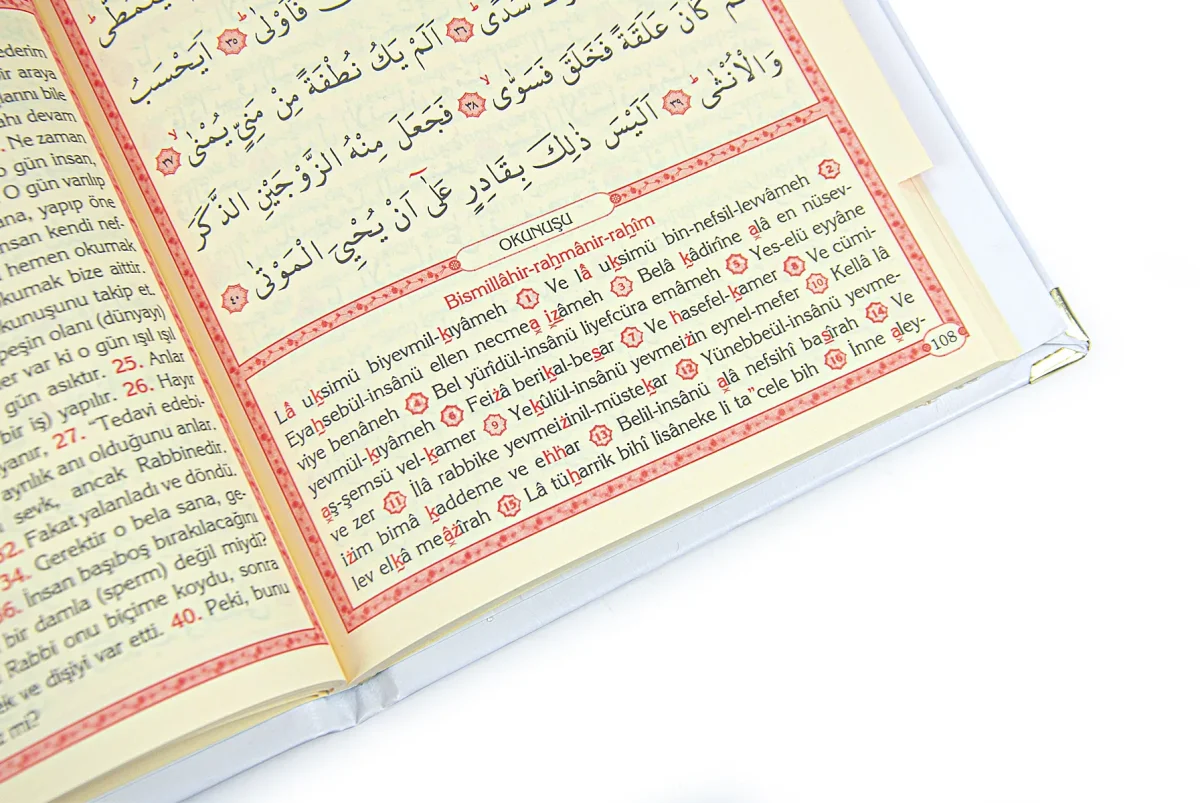 ederim
bir araya
larını bile
ahı devam
. Ne zaman
o gün insan,
O gün varılıp
ana, yapıp öne
insan kendi nef-
hemen okumak
kumak bize aittir.
kunuşunu takip et.
peşin olanı (dünyayı)
ğer var ki o gün ışıl ışıl
gün asıktır. 25. Anlar
bir iş) yapılır. 26. Hayır
yanır, 27. “Tedavi edebi-
ayrılık anı olduğunu anlar.
sevk, ancak Rabbinedir.
32. Fakat yalanladı ve döndü.
34. Gerektir o bela sana, ge-
36. İnsan başıboş bırakılacağını
bir damla (sperm) değil miydi?
Rabbi onu biçime koydu, sonra
ek ve dişiyi var etti. 40. Peki, bunu
mi?
يَتَمَطّٰى
فَاَوْلٰى ۳٥ اَيَحْسَبُ
سُدًى ۳٦ اَلَمْ يَكُ نُطْفَةً مِنْ مَنِيٍّ يُمْنٰى ۳۷
كَانَ عَلَقَةً فَخَلَقَ فَسَوّٰى ۳۸ فَجَعَلَ مِنْهُ الزَّوْجَيْنِ الذَّكَرَ
وَالْاُنْثٰى ۳۹ اَلَيْسَ ذٰلِكَ بِقَادِرٍ عَلٰٓى اَنْ يُحْيِيَ الْمَوْتٰى ٤٠
OKUNUŞU
Bismillâhir-rahmânir-rahîm
Lâ uksimü biyevmil-kıyâmeh 1 Ve lâ uksimü bin-nefsil-levvâmeh 2
Eyahsebül-insânü ellen necmea izâmeh 3 Belâ kâdirîne alâ en nüsev-
viye benâneh 4 Bel yürîdül-insânü liyefcüra emâmeh 5 Yes-elü eyyâne
yevmül-kıyâmeh 6 Feiżâ berikal-besar 7 Ve hasefel-kamer 8 Ve cümi-
aş-şemsü vel-kamer 9 Yekûlül-insânü yevmeiżin eynel-mefer 10 Kellâ lâ
ve zer 11 İlâ rabbike yevmeiżinil-müstekar 12 Yünebbeül-insânü yevme-
iżim bimâ kaddeme ve ehhar 13 Belil-insânü alâ nefsihî basîrah 14 Ve
lev elkâ meâżîrah 15 Lâ tüharrik bihî lisâneke li ta”cele bih 16 İnne aley-
108